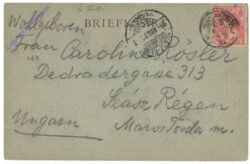 BRIEF
Wohlgeboren
Frau Caroline Rösler
AAN
Dedradergasse 313
Szász Régen
Ungarn Maros Torda m.